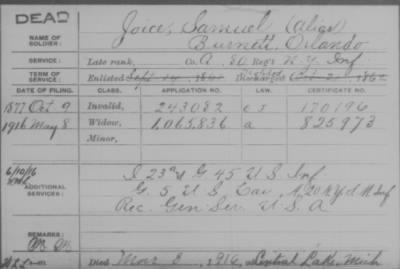 DEAD
Joice, Samuel (Alias)
NAME OF SOLDIER:
Burnett, Orlando
SERVICE:
Late rank, Co. A, 80 Reg't N.Y. Inf
TERM OF SERVICE:
Enlisted Sept 186 Discharged Oct 2 186
DATE OF FILING. CLASS. APPLICATION NO. LAW. CERTIFICATE NO.
1877 Oct 9 Invalid, 243082 170196
1916 May 8 Widow, 1,065,836 a 825973
Minor,
6/10/16
ADDITIONAL SERVICES:
I 23" & G 45 U S Inf
G. 5 U S Cav, A 20 N.Y. S M Inf
Rec. Gen Ser. U. S. A
REMARKS:
Died Mar 8, 1916, Central Lake, Mich